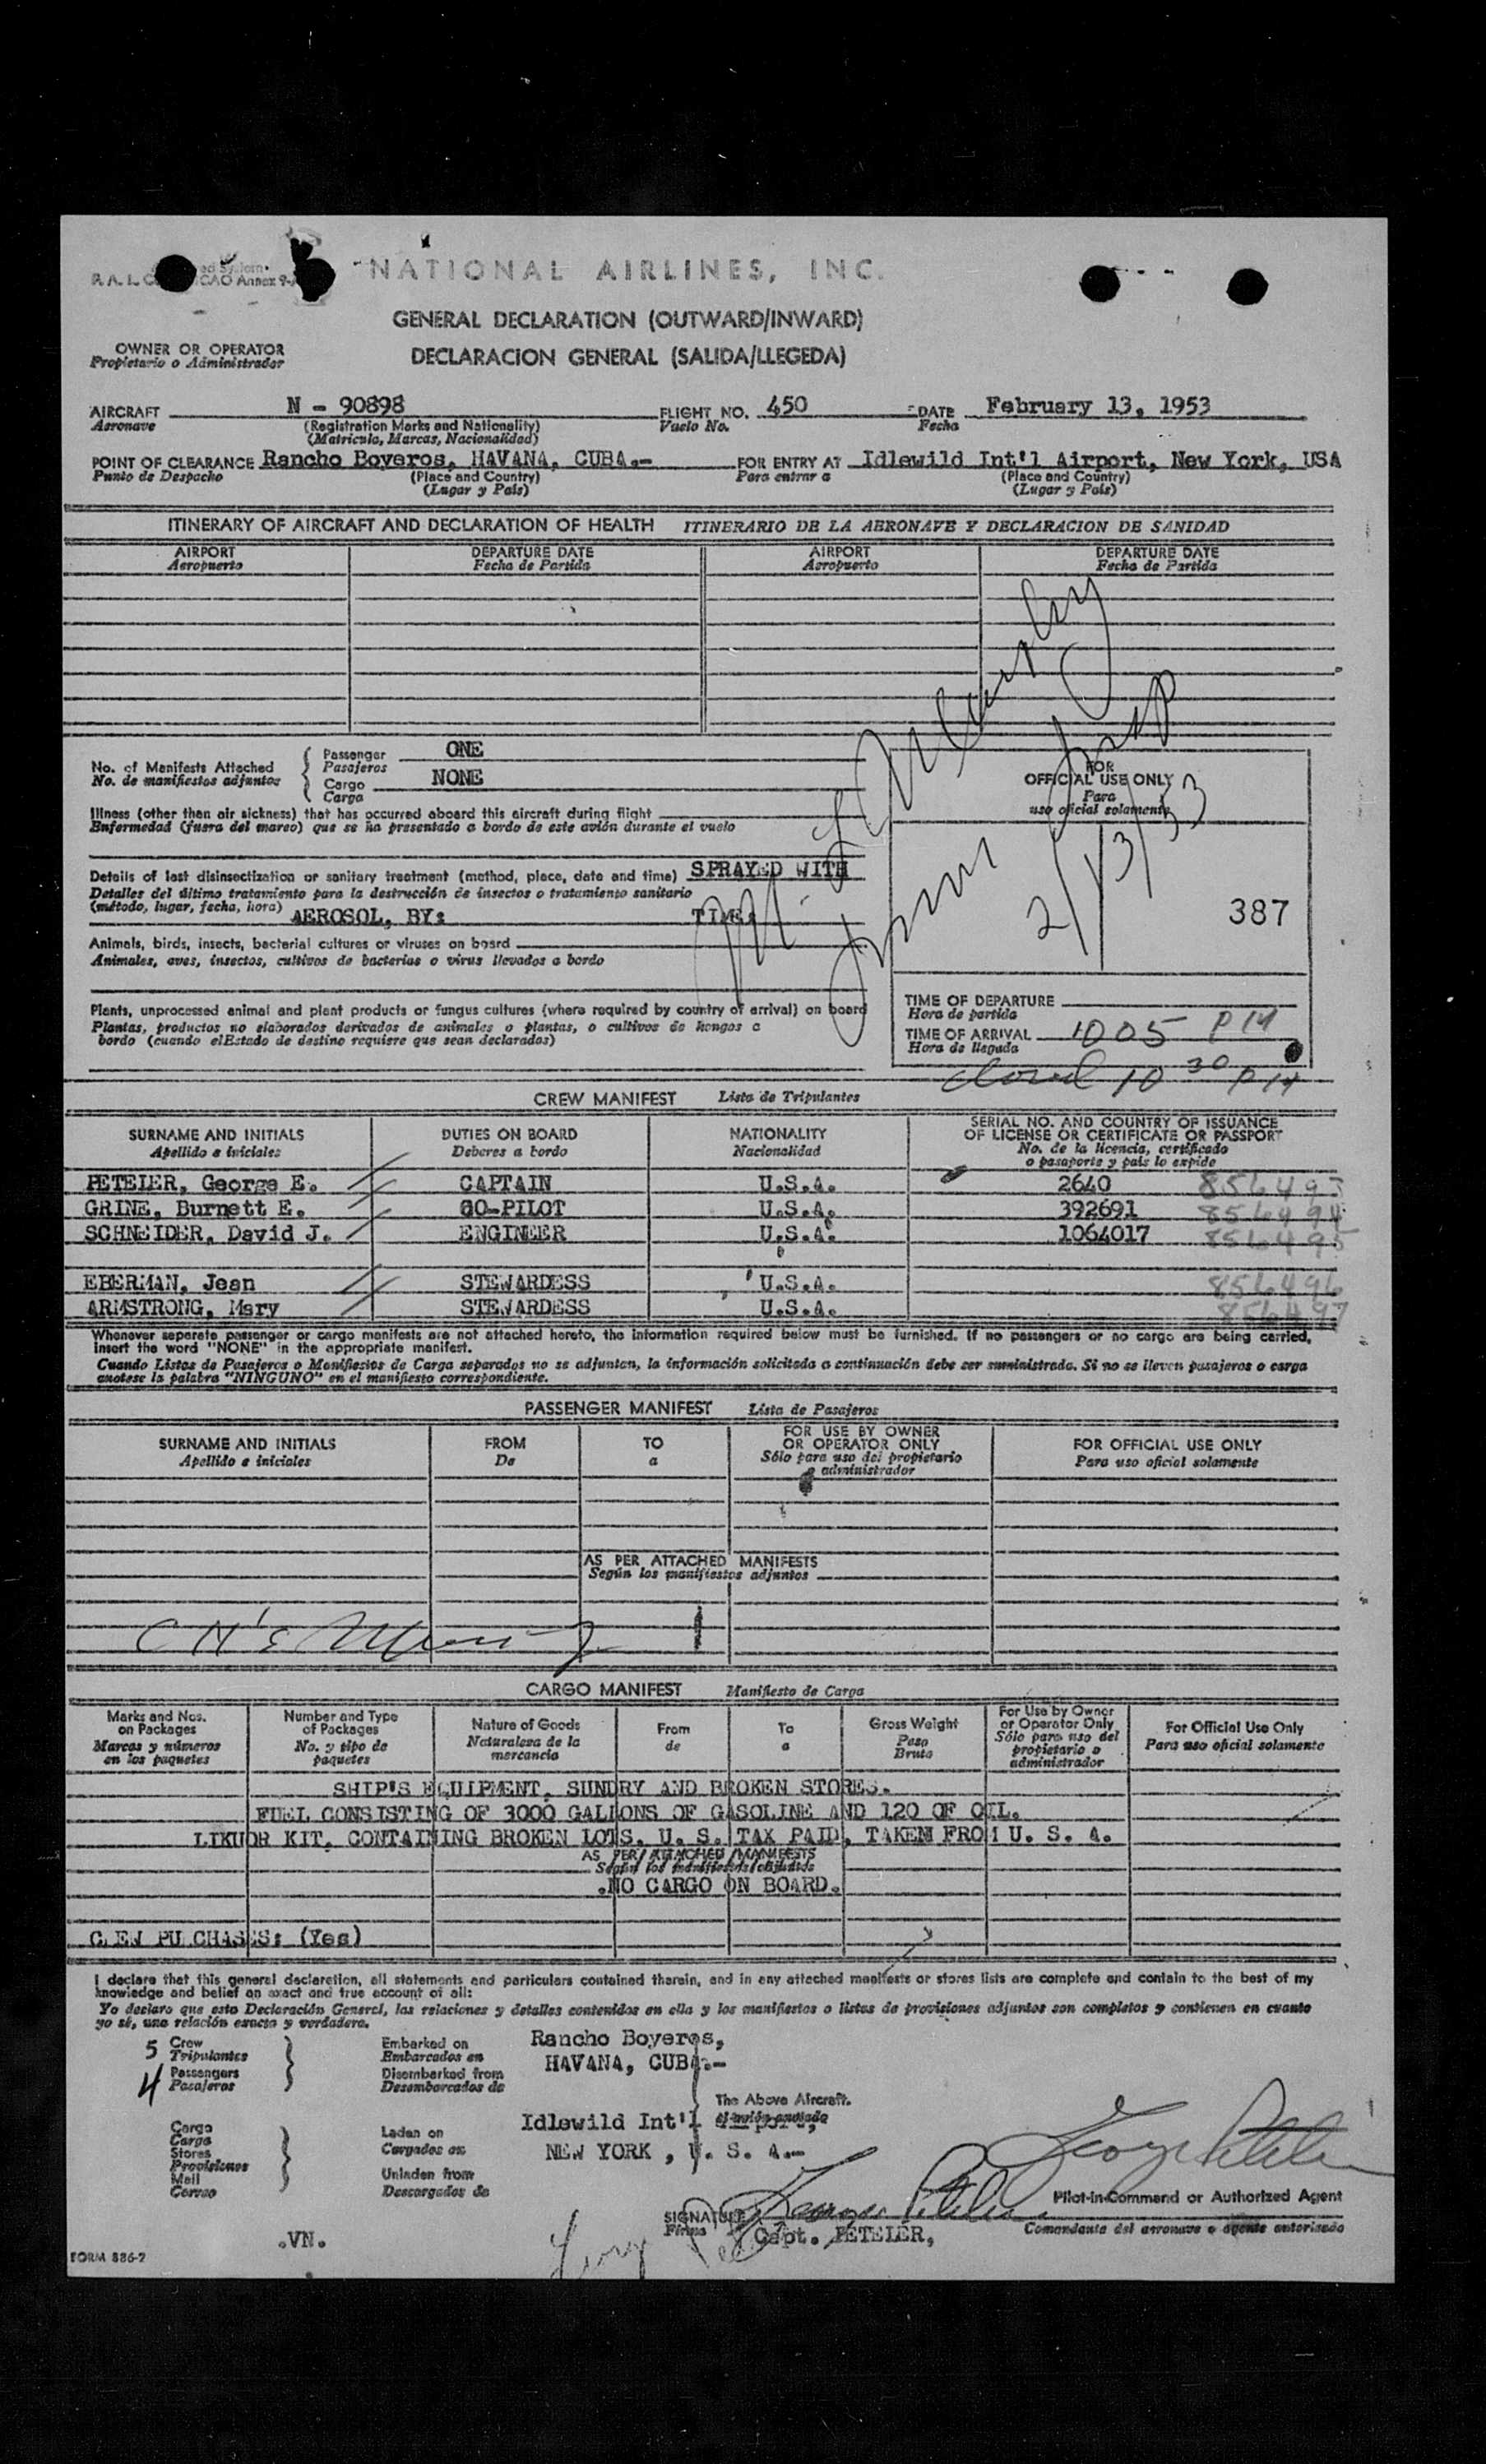 NATIONAL AIRLINES, INC.
GENERAL DECLARATION (OUTWARD/INWARD)
DECLARACION GENERAL (SALIDA/LLEGEDA)
OWNER OR OPERATOR
Propietario o Administrador
AIRCRAFT N - 90898 FLIGHT NO. 450 DATE February 13, 1953
Aeronave (Registration Marks and Nationality) Vuelo No. Fecha
(Matricula, Marcas, Nacionalidad)
POINT OF CLEARANCE Rancho Boyeros, HAVANA, CUBA.- FOR ENTRY AT Idlewild Int'l Airport, New York, USA
Punto de Despacho (Place and Country) Para entrar a (Place and Country)
(Lugar y Pais) (Lugar y Pais)
ITINERARY OF AIRCRAFT AND DECLARATION OF HEALTH ITINERARIO DE LA AERONAVE Y DECLARACION DE SANIDAD
AIRPORT DEPARTURE DATE AIRPORT DEPARTURE DATE
Aeropuerto Fecha de Partida Aeropuerto Fecha de Partida
No. of Manifests Attached Passenger ONE
No. de manifiestos adjuntos Pasajeros
Cargo NONE
Carga
Illness (other than air sickness) that has occurred aboard this aircraft during flight
Enfermedad (fuera del mareo) que se ha presentado a bordo de este avión durante el vuelo
Details of last disinsectization or sanitary treatment (method, place, date and time) SPRAYED WITH
Detalles del último tratamiento para la destrucción de insectos o tratamiento sanitario
(método, lugar, fecha, hora) AEROSOL, BY: TIME:
Animals, birds, insects, bacterial cultures or viruses on board
Animales, aves, insectos, cultivos de bacterias o virus llevados a bordo
Plants, unprocessed animal and plant products or fungus cultures (where required by country of arrival) on board
Plantas, productos no elaborados derivados de animales o plantas, o cultivos de hongos a
bordo (cuando elEstado de destino requiere que sean declarados)
FOR
OFFICIAL USE ONLY
Para
uso oficial solamente
2/13/53
387
TIME OF DEPARTURE
Hora de partida
TIME OF ARRIVAL 1005 PM
Hora de llegada
closed 10 30 PM
CREW MANIFEST Lista de Tripulantes
SURNAME AND INITIALS DUTIES ON BOARD NATIONALITY SERIAL NO. AND COUNTRY OF ISSUANCE
OF LICENSE OR CERTIFICATE OR PASSPORT
Apellido e iniciales Deberes a bordo Nacionalidad No. de la licencia, certificado
o pasaporte y pais lo expide
PETELER, George E. CAPTAIN U.S.A. 2640 856493
GRINE, Burnett E. CO-PILOT U.S.A. 392691 856494
SCHNEIDER, David J. ENGINEER U.S.A. 1064017 856495
EBERMAN, Jean STEWARDESS U.S.A. 856496
ARMSTRONG, Mary STEWARDESS U.S.A. 856497
Whenever separate passenger or cargo manifests are not attached hereto, the information required below must be furnished. If no passengers or no cargo are being carried,
insert the word "NONE" in the appropriate manifest.
Cuando Listas de Pasajeros o Manifiestos de Carga separados no se adjuntan, la información solicitada a continuación debe ser suministrada. Si no se lleven pasajeros o carga
anotese la palabra "NINGUNO" en el manifiesto correspondiente.
PASSENGER MANIFEST Lista de Pasajeros
SURNAME AND INITIALS FROM TO FOR USE BY OWNER
OR OPERATOR ONLY FOR OFFICIAL USE ONLY
Apellido e iniciales De a Sólo para uso del propietario
o administrador Para uso oficial solamente
AS PER ATTACHED MANIFESTS
Según los manifiestos adjuntos
CARGO MANIFEST Manifiesto de Carga
Marks and Nos.
on Packages
Marcas y números
en los paquetes
Number and Type
of Packages
No. y tipo de
paquetes
Nature of Goods
Naturaleza de la
mercancia
From
de
To
a
Gross Weight
Peso
Bruto
For Use by Owner
or Operator Only
Sólo para uso del
propietario o
administrador
For Official Use Only
Para uso oficial solamente
SHIP'S EQUIPMENT, SUNDRY AND BROKEN STORES.
FUEL CONSISTING OF 3000 GALLONS OF GASOLINE AND 120 OF OIL.
LIKUOR KIT, CONTAINING BROKEN LOTS, U. S. TAX PAID, TAKEN FROM U. S. A.
AS PER ATTACHED MANIFESTS
Según los manifiestos adjuntos
.NO CARGO ON BOARD.
C.EW PU CHASES: (Yes)
I declare that this general declaration, all statements and particulars contained therein, and in any attached manifests or stores lists are complete and contain to the best of my
knowledge and belief an exact and true account of all:
Yo declaro que esta Declaración General, las relaciones y detalles contenidos en ella y los manifiestos o listas de provisiones adjuntos son completos y contienen en cuanto
yo sé, una relación exacta y verdadera.
5 Crew
Tripulantes
4 Passengers
Pasajeros
Embarked on
Embarcados en
Disembarked from
Desembarcados de
Rancho Boyeros,
HAVANA, CUBA.-
The Above Aircraft.
Cargo
Carga
Stores
Provisiones
Mail
Correo
Laden on
Cargados en
Unladen from
Descargados de
Idlewild Int'l
NEW YORK, U. S. A.-
George Peteler
Pilot-in-Command or Authorized Agent
Comandante del aeronave o agente autorizado
SIGNATURE George Peteler
Firma Capt. PETELER,
.VN.
FORM 886-2